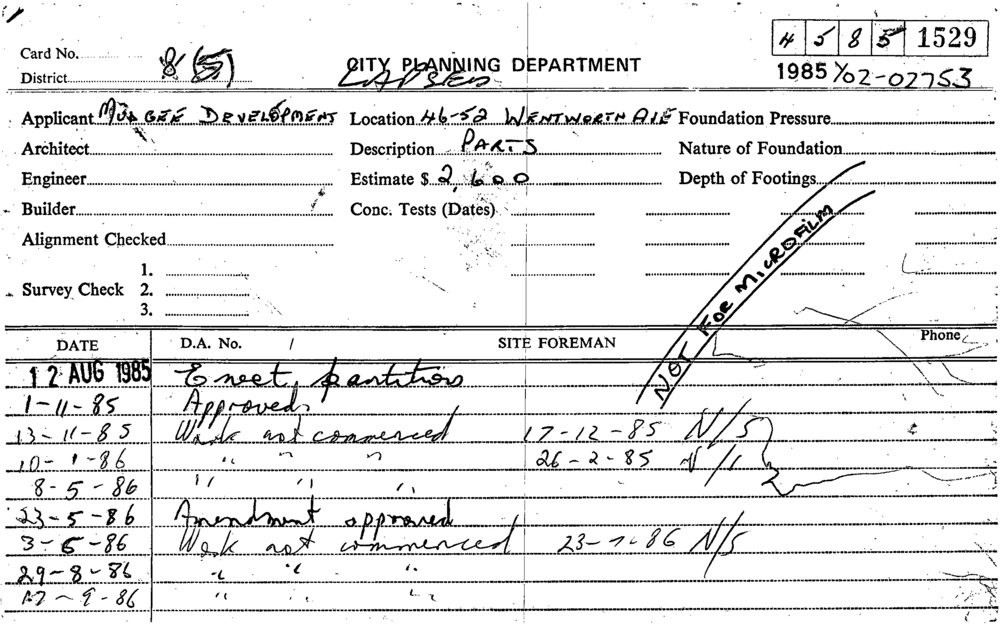 4 5 8 5 1529
Card No.
8(5)
CITY PLANNING DEPARTMENT
District
LAPSED
1985 1/02-02753
Applicant MUDGEE DEVELOPMENT Location 46-52 WENTWORTH AVE Foundation Pressure
Architect Description PARTS Nature of Foundation
Engineer Estimate $ 2,600 Depth of Footings
Builder Conc. Tests (Dates)
Alignment Checked
1.
Survey Check 2.
3.
NOT FOR MICROFILM
DATE D.A. No. / SITE FOREMAN Phone
12 AUG 1985 Erect partitions
1-11-85 Approved
13-11-85 Work not commenced 17-12-85 N/S
10-1-86 " " " 26-2-85 N/
8-5-86 " " "
23-5-86 Amendment approved
3-6-86 Work not commenced 23-7-86 N/S
29-8-86 " " "
-9-86 " " "